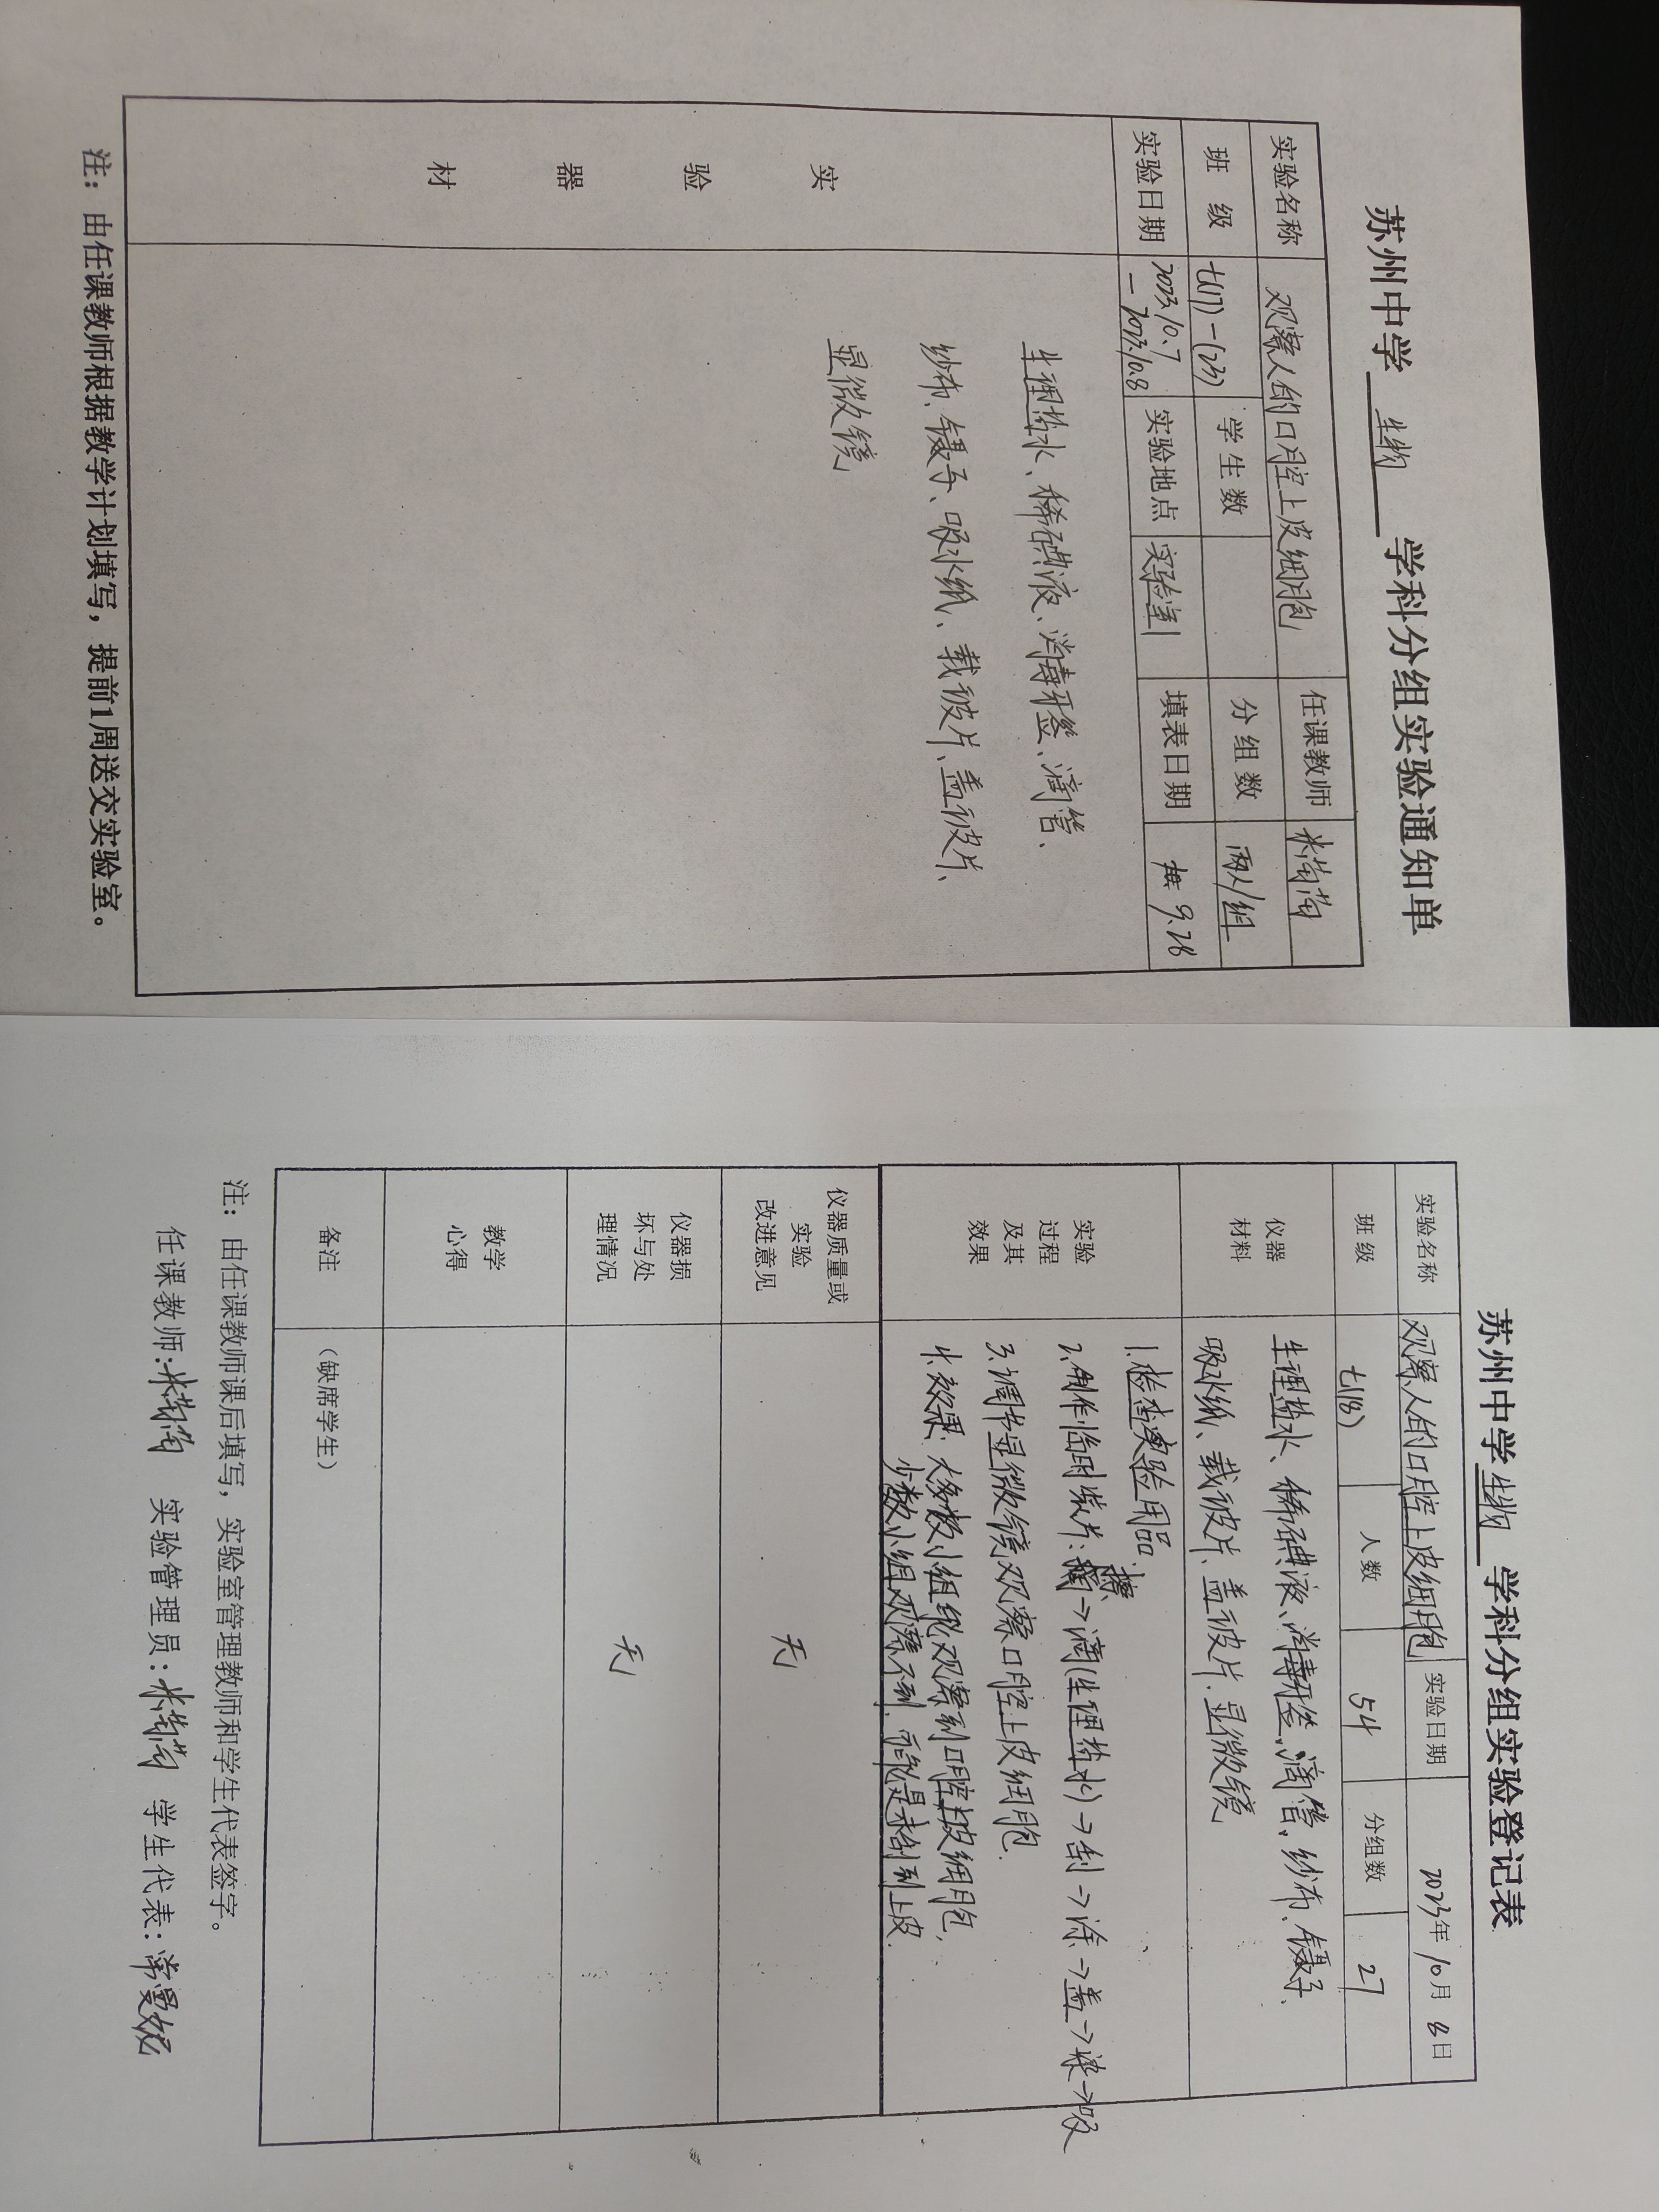 苏州中学 生物 学科分组实验通知单
实验名称 观察人的口腔上皮细胞 任课教师
班 级 七(17)-(23) 学生数 分组数 两人/组
实验日期 2023.10.7-2023.10.8 实验地点 实验室 填表日期 9.28
实验器材
生理盐水、稀碘液、消毒牙签、滴管、
纱布、镊子、吸水纸、载玻片、盖玻片、
显微镜
注：由任课教师根据教学计划填写，提前1周送交实验室。
苏州中学 生物 学科分组实验登记表
实验名称 观察人的口腔上皮细胞 实验日期 2023年10月8日
班 级 七(18) 人 数 54 分组数 27
仪器材料
生理盐水、稀碘液、消毒牙签、滴管、纱布、镊子、
吸水纸、载玻片、盖玻片、显微镜
实验过程及其效果
1.检查实验用品.
2.制作临时装片：擦→滴(生理盐水)→刮→涂→盖→染→吸
3.调节显微镜观察口腔上皮细胞.
4.效果：大多数小组能观察到口腔上皮细胞，
少数小组观察不到，可能是未刮到上皮.
仪器质量或实验改进意见 无
仪器损坏与处理情况 无
教学心得
备注 （缺席学生）
注：由任课教师课后填写，实验室管理教师和学生代表签字。
任课教师： 实验管理员： 学生代表：